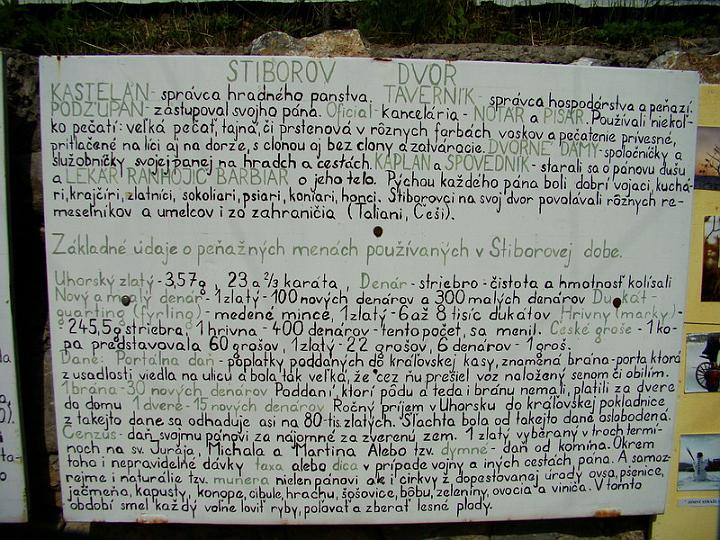 STIBOROV DVOR
KASTELÁN - správca hradného panstva, TAVERNIK - správca hospodárstva a peňazí.
PODŽUPAN - zastupoval svojho pána. Oficial - kancelária - NOTÁR a PISÁR. Používali niekoľ-
ko pečatí: veľká pečať, tajná, či prstenová v rôznych farbách voskov a pečatenie prívesné,
pritlačené na líci aj na dorze, s clonou aj bez clony a zatváracie. DVORNÉ DÁMY - spoločníčky a
služobníčky svojej panej na hradch a cestách. KAPLAN a SPOVEDNÍK - starali sa o pánovu dušu
a LEKÁR RANHOJIČ BARBIAR o jeho telo. Pýchou každého pána boli dobrí vojaci, kuchá-
ri, krajčíri, zlatníci, sokoliari, psiari, koniari, honci. Stiborovci na svoj dvor povolávali rôznych re-
meselníkov a umelcov i zo zahraničia (Taliani, Česi).
Základné údaje o peňažných menách používaných v Stiborovej dobe.
Uhorský zlatý - 3,57g, 23 a 2/3 karáta, Denár - striebro - čistota a hmotnosť kolísali
Nový a malý denár - 1zlatý - 100 nových denárov a 300 malých denárov Dukát -
quarting (fyrling) - medené mince, 1zlatý - 6 až 8 tisíc dukátov Hrivny (marky) -
- 245,5g striebra, 1 hrivna - 400 denárov - tento počet, sa menil. České groše - 1 ko-
pa predstavovala 60 grošov, 1zlatý - 22 grošov, 6 denárov - 1 groš.
Dane: Portálna daň - poplatky poddaných do kráľovskej kasy, znamená brána - porta ktorá
z usadlosti viedla na ulicu a bola tak veľká, že cez ňu prešiel voz naložený senom či obilím.
1 brána - 30 nových denárov Poddaní, ktorí pôdu a teda i bránu nemali, platili za dvere
do domu 1 dvere - 15 nových denárov Ročný príjem v Uhorsku do kráľovskej pokladnice
z takejto dane sa odhaduje asi na 80-tis. zlatých. Šľachta bola od takejto dane oslobodená.
Cenzus - daň svojmu pánovi za nájomné za zverenú zem. 1 zlatý vyberaný v troch termí-
noch na sv. Juraja, Michala a Martina Alebo tzv. dymné - daň od komína. Okrem
toho i nepravidelné dávky taxa alebo dica v prípade vojny a iných cestách pána. A samoz-
rejme i naturálie tzv. munera nielen pánovi ale i cirkvy z dopestovanej úrody ovsa, pšenice,
jačmeňa, kapusty, konope, cibule, hrachu, šošovice, bôbu, zeleniny, ovocia a viniča. V tomto
období smel každý voľne loviť ryby, poľovať a zberať lesné plody.